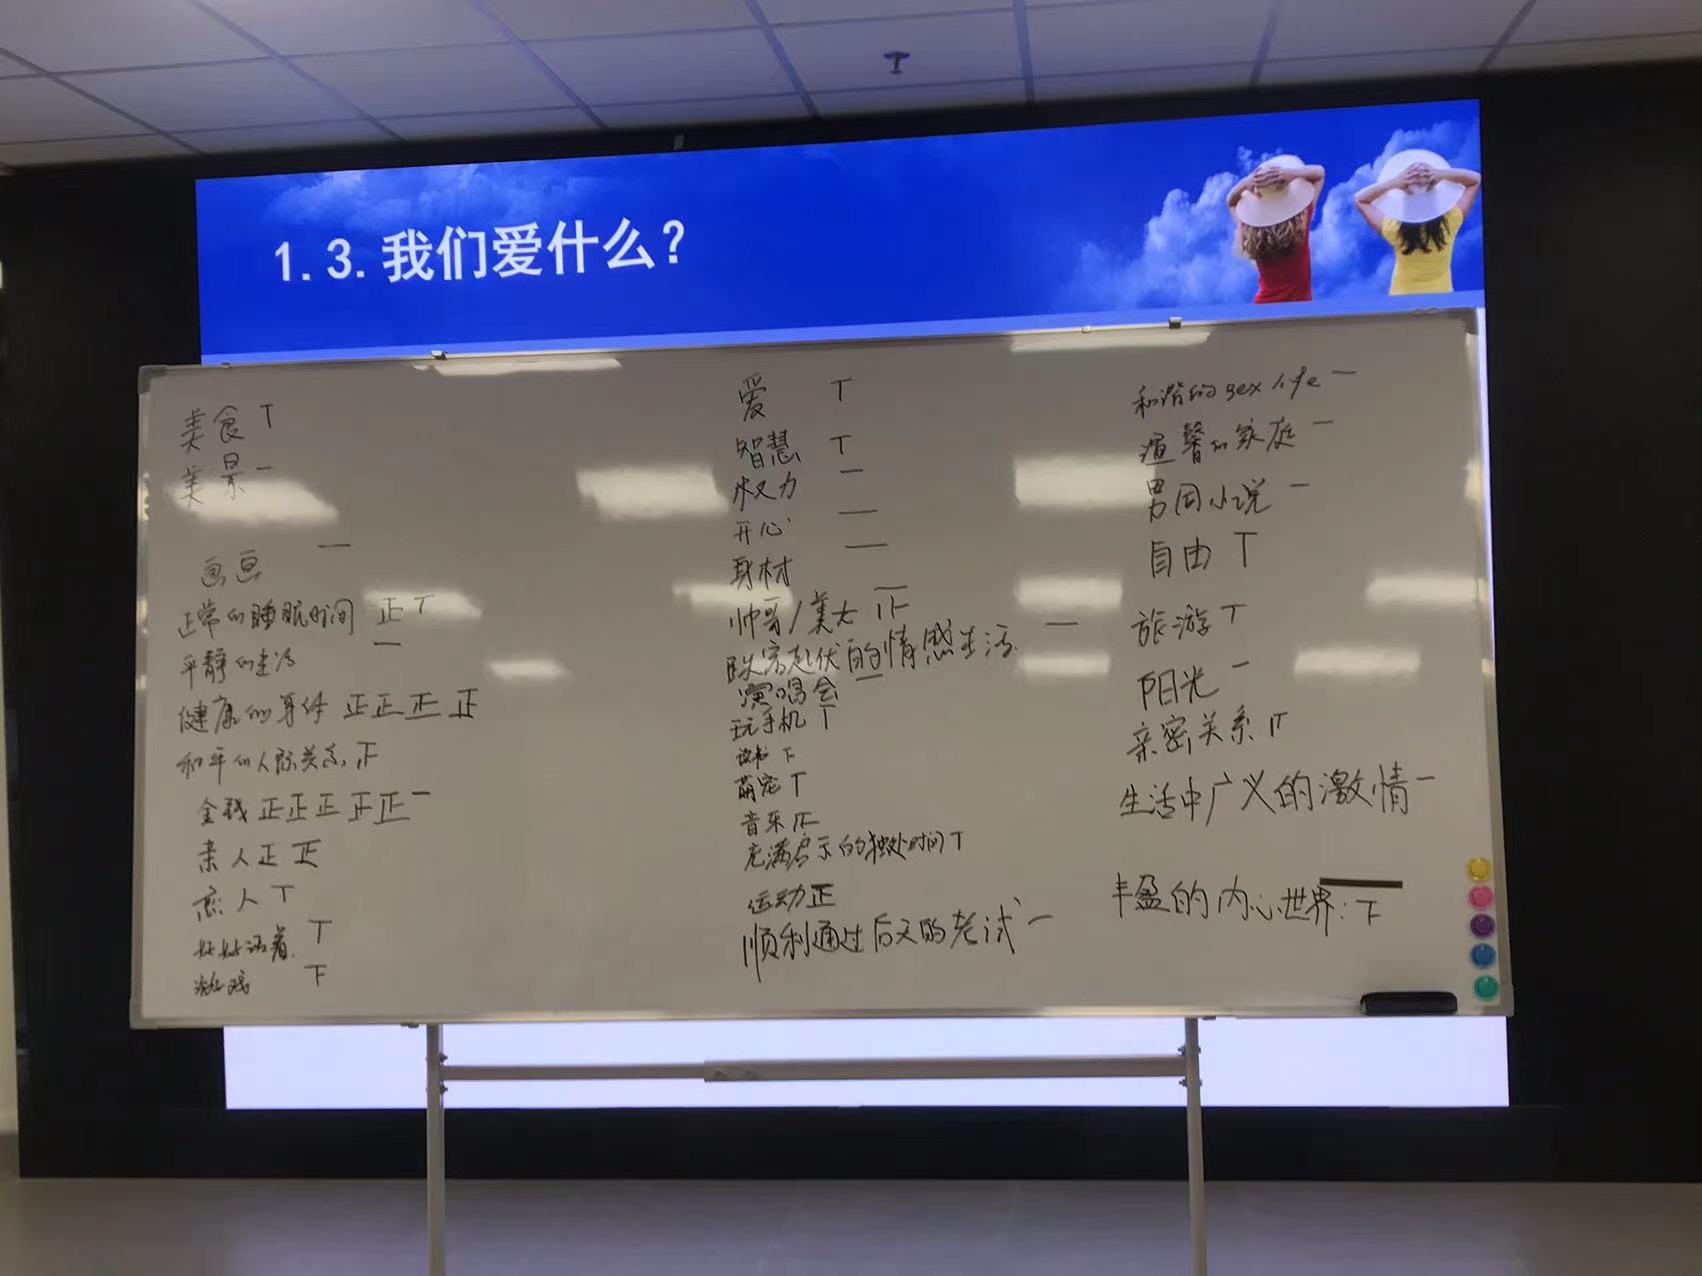 1.3.我们爱什么?
美食 丅
美景 一
画画 一
正常的睡眠时间 正丅
平静的生活 一
健康的身体 正正正正
和平的人际关系 正
金钱 正正正正正一
亲人 正正
恋人 丅
好好活着. 丅
游戏 下
爱 丅
智慧 丅
权力 一
开心 一
身材 一
帅哥/美女
跌宕起伏的情感生活. 一
演唱会 一
玩手机 丅
读书 下
萌宠 丅
音乐
充满启示的独处时间 丅
运动 正
顺利通过后天的考试 一
和谐的sex life 一
温馨的家庭 一
男同小说 一
自由 丅
旅游 丅
阳光 一
亲密关系
生活中广义的激情 一
丰盈的内心世界: 下